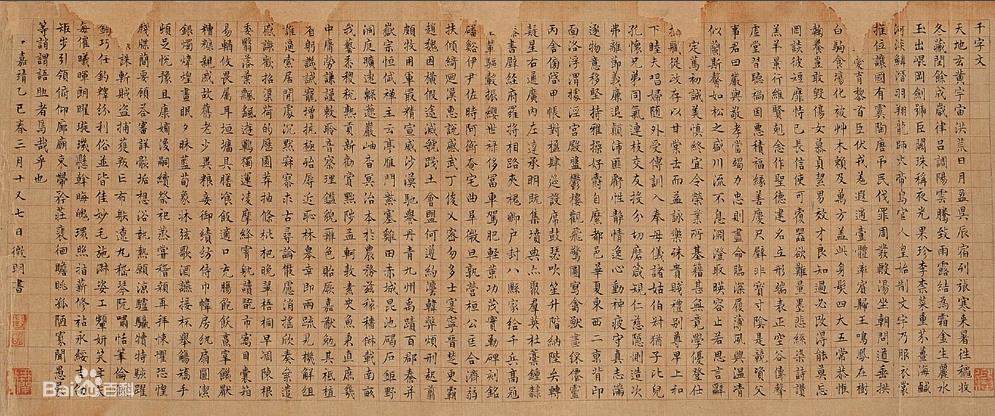 千字文
天地玄黃宇宙洪荒日月盈昃辰宿列張寒來暑往秋收
冬藏閏餘成歲律呂調陽雲騰致雨露結為霜金生麗水
玉出崑岡劍號巨闕珠稱夜光果珍李柰菜重芥薑海鹹
河淡鱗潛羽翔龍師火帝鳥官人皇始制文字乃服衣裳
推位讓國有虞陶唐弔民伐罪周發殷湯坐朝問道垂拱
愛育黎首臣伏戎羌遐邇壹體率賓歸王鳴鳳在樹
白駒食場化被草木賴及萬方蓋此身髮四大五常恭惟
鞠養豈敢毀傷女慕貞絜男效才良知過必改得能莫忘
罔談彼短靡恃己長信使可覆器欲難量墨悲絲染詩讚
羔羊景行維賢克念作聖德建名立形端表正空谷傳聲
虛堂習聽禍因惡積福緣善慶尺璧非寶寸陰是競資父
事君曰嚴與敬孝當竭力忠則盡命臨深履薄夙興溫凊
似蘭斯馨如松之盛川流不息淵澄取映容止若思言辭
定篤初誠美慎終宜令榮業所基籍甚無竟學優登仕
職從政存以甘棠去而益詠樂殊貴賤禮別尊卑上和
下睦夫唱婦隨外受傅訓入奉母儀諸姑伯叔猶子比兒
孔懷兄弟同氣連枝交友投分切磨箴規仁慈隱惻造次
弗離節義廉退顛沛匪虧性靜情逸心動神疲守真志滿
逐物意移堅持雅操好爵自縻都邑華夏東西二京背邙
面洛浮渭據涇宮殿盤鬱樓觀飛驚圖寫禽獸畫彩仙靈
丙舍傍啟甲帳對楹肆筵設席鼓瑟吹笙升階納陛弁轉
疑星右通廣內左達承明既集墳典亦聚群英杜稾鍾隸
書壁經府羅將相路夾槐卿戶封八縣家給千兵高冠
輦驅轂振纓世祿侈富車駕肥輕策功茂實勒碑刻銘
磻溪伊尹佐時阿衡奄宅曲阜微旦孰營桓公匡合濟弱
扶傾綺迴漢惠說感武丁俊乂密勿多士寔寧晉楚更霸
趙魏困橫假途滅虢踐土會盟何遵約法韓弊煩刑起翦
頗牧用軍最精宣威沙漠馳譽丹青九州禹跡百郡秦并
嶽宗恒岱禪主云亭雁門紫塞雞田赤城昆池碣石鉅野
洞庭曠遠緜邈巖岫杳冥治本於農務茲稼穡俶載南畝
我藝黍稷稅熟貢新勸賞黜陟孟軻敦素史魚秉直庶幾
中庸勞謙謹敕聆音察理鑑貌辨色貽厥嘉猷勉其祗植
省躬譏誡寵增抗極殆辱近恥林皋幸即兩疏見機解組
誰逼索居閒處沉默寂寥求古尋論散慮逍遙欣奏累遣
慼謝歡招渠荷的歷園莽抽條枇杷晚翠梧桐早凋陳根
委翳落葉飄颻遊鵾獨運凌摩絳霄耽讀翫市寓目囊箱
易輶攸畏屬耳垣墻具膳餐飯適口充腸飽飫烹宰饑厭
糟糠親戚故舊老少異糧妾御績紡侍巾帷房紈扇圓潔
銀燭煒煌晝眠夕寐藍筍象床弦歌酒讌接杯舉觴矯手
頓足悅豫且康嫡後嗣續祭祀蒸嘗稽顙再拜悚懼恐惶
牋牒簡要顧答審詳骸垢想浴執熱願涼驢騾犢特駭躍
誅斬賊盜捕獲叛亡布射遼丸嵇琴阮嘯恬筆倫紙
巧任釣釋紛利俗並皆佳妙毛施淑姿工顰妍笑年矢
每催曦暉朗曜璇璣懸斡晦魄環照指薪修祜永綏吉劭
矩步引領俯仰廊廟束帶矜莊徘徊瞻眺孤陋寡聞愚蒙
等誚謂語助者焉哉乎也
嘉靖乙巳春三月十又七日徵明書
Baidu百科